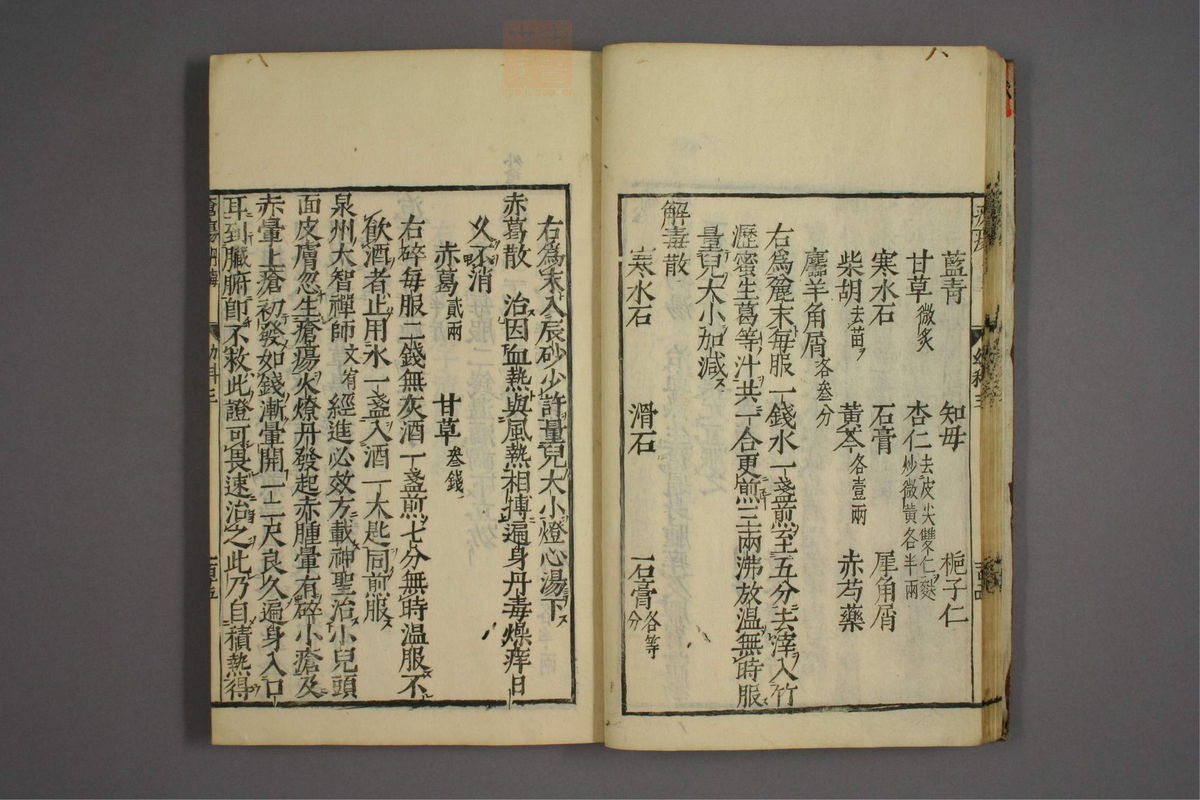 藍青　知毋　梔子仁
甘草微炙　杏仁去皮尖雙仁麩炒微黄各半兩
寒水石　石膏　犀角屑
柴胡去苗　黄芩各壹兩　赤芍藥
麢羊角屑各叄分
右爲麄末每服一錢水一盞煎至五分去滓入竹
瀝蜜生葛等汁共一合更煎三兩沸放温無時服
量兒大小加減
解毒散
寒水石　滑石　石膏各等分
右爲末入辰砂少許量兒大小燈心湯下
赤葛散　治因血熱與風熱相搏遍身丹毒燥痒日
久不消
赤葛貳兩　甘草叄錢
右碎每服二錢無灰酒一盞煎七分無時温服不
飲酒者止用水一盞入酒一大匙同煎服
泉州大智禪師文宥經進必效方載神聖治小兒頭
面皮膚忽生瘡瘍火燎丹發起赤腫暈有碎小瘡及
赤暈上瘡初發如錢漸暈開一二尺良久遍身入口
耳到臟腑卽不救此證可畏速治之此乃自積熱得
幼科三